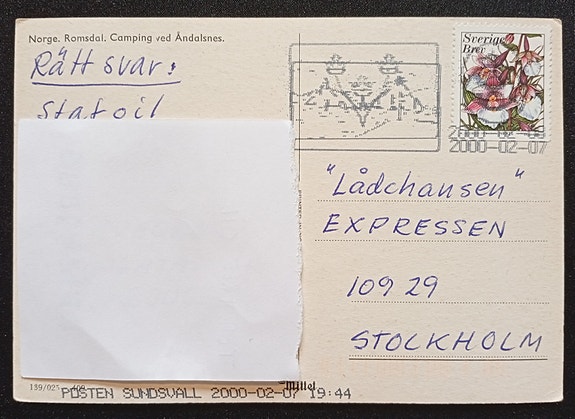 Norge. Romsdal. Camping ved Åndalsnes.
Rätt svar:
Statoil
Sverige
Brev
2000-02-07
"Lådchansen"
EXPRESSEN
109 29
STOCKHOLM
139/025
Mittet
POSTEN SUNDSVALL 2000-02-07 19:44